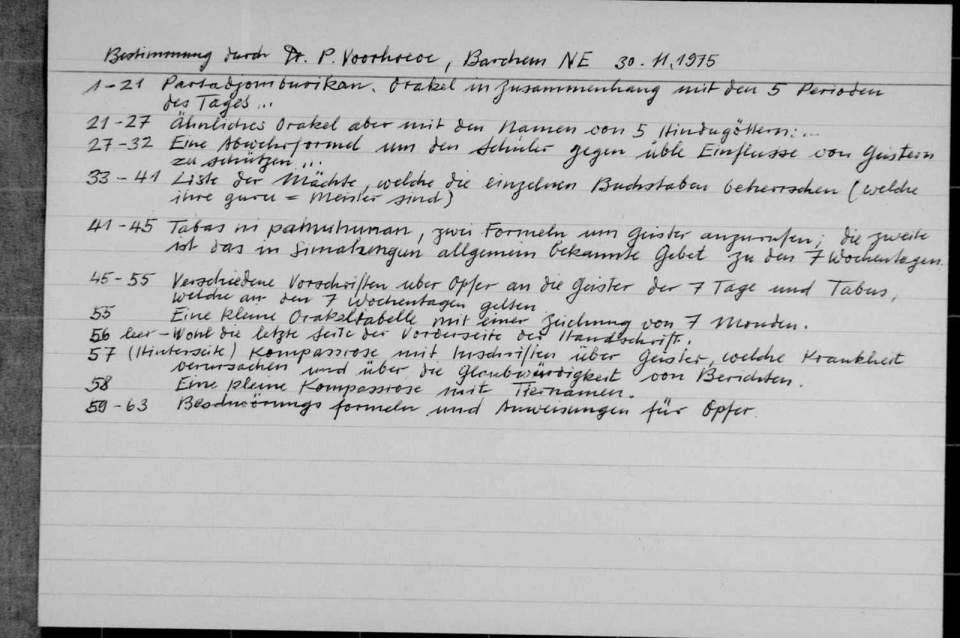 Bestimmung durch Dr. P. Voorhoeve, Barchem NE 30.11.1975
1-21 Partadjomburikan. Orakel in Zusammenhang mit den 5 Perioden
des Tages...
21-27 Ähnliches Orakel aber mit den Namen von 5 Hindugöttern:...
27-32 Eine Abwehrformel um den Schüler gegen üble Einflüsse von Geistern
zu schützen...
33-41 Liste der Mächte, welche die einzelnen Buchstaben beherrschen (welche
ihre guru = Meister sind)
41-45 Tabas ni zwei Formeln um Geister anzurufen; die zweite
ist das in Simalungun allgemein bekannte Gebet zu den 7 Wochentagen.
45-55 Verschiedene Vorschriften über Opfer an die Geister der 7 Tage und Tabus,
welche an den 7 Wochentagen gelten
55 Eine kleine Orakeltabelle mit einer Zeichnung von 7 Monden.
56 leer - Wohl die letzte Seite der Vorderseite der Handschrift.
57 (Hinterseite) Kompassrose mit Inschriften über Geister, welche Krankheit
verursachen und über die Glaubwürdigkeit von Berichten.
58 Eine kleine Kompassrose mit Tiernamen.
59-63 Beschwörungsformeln und Anweisungen für Opfer.